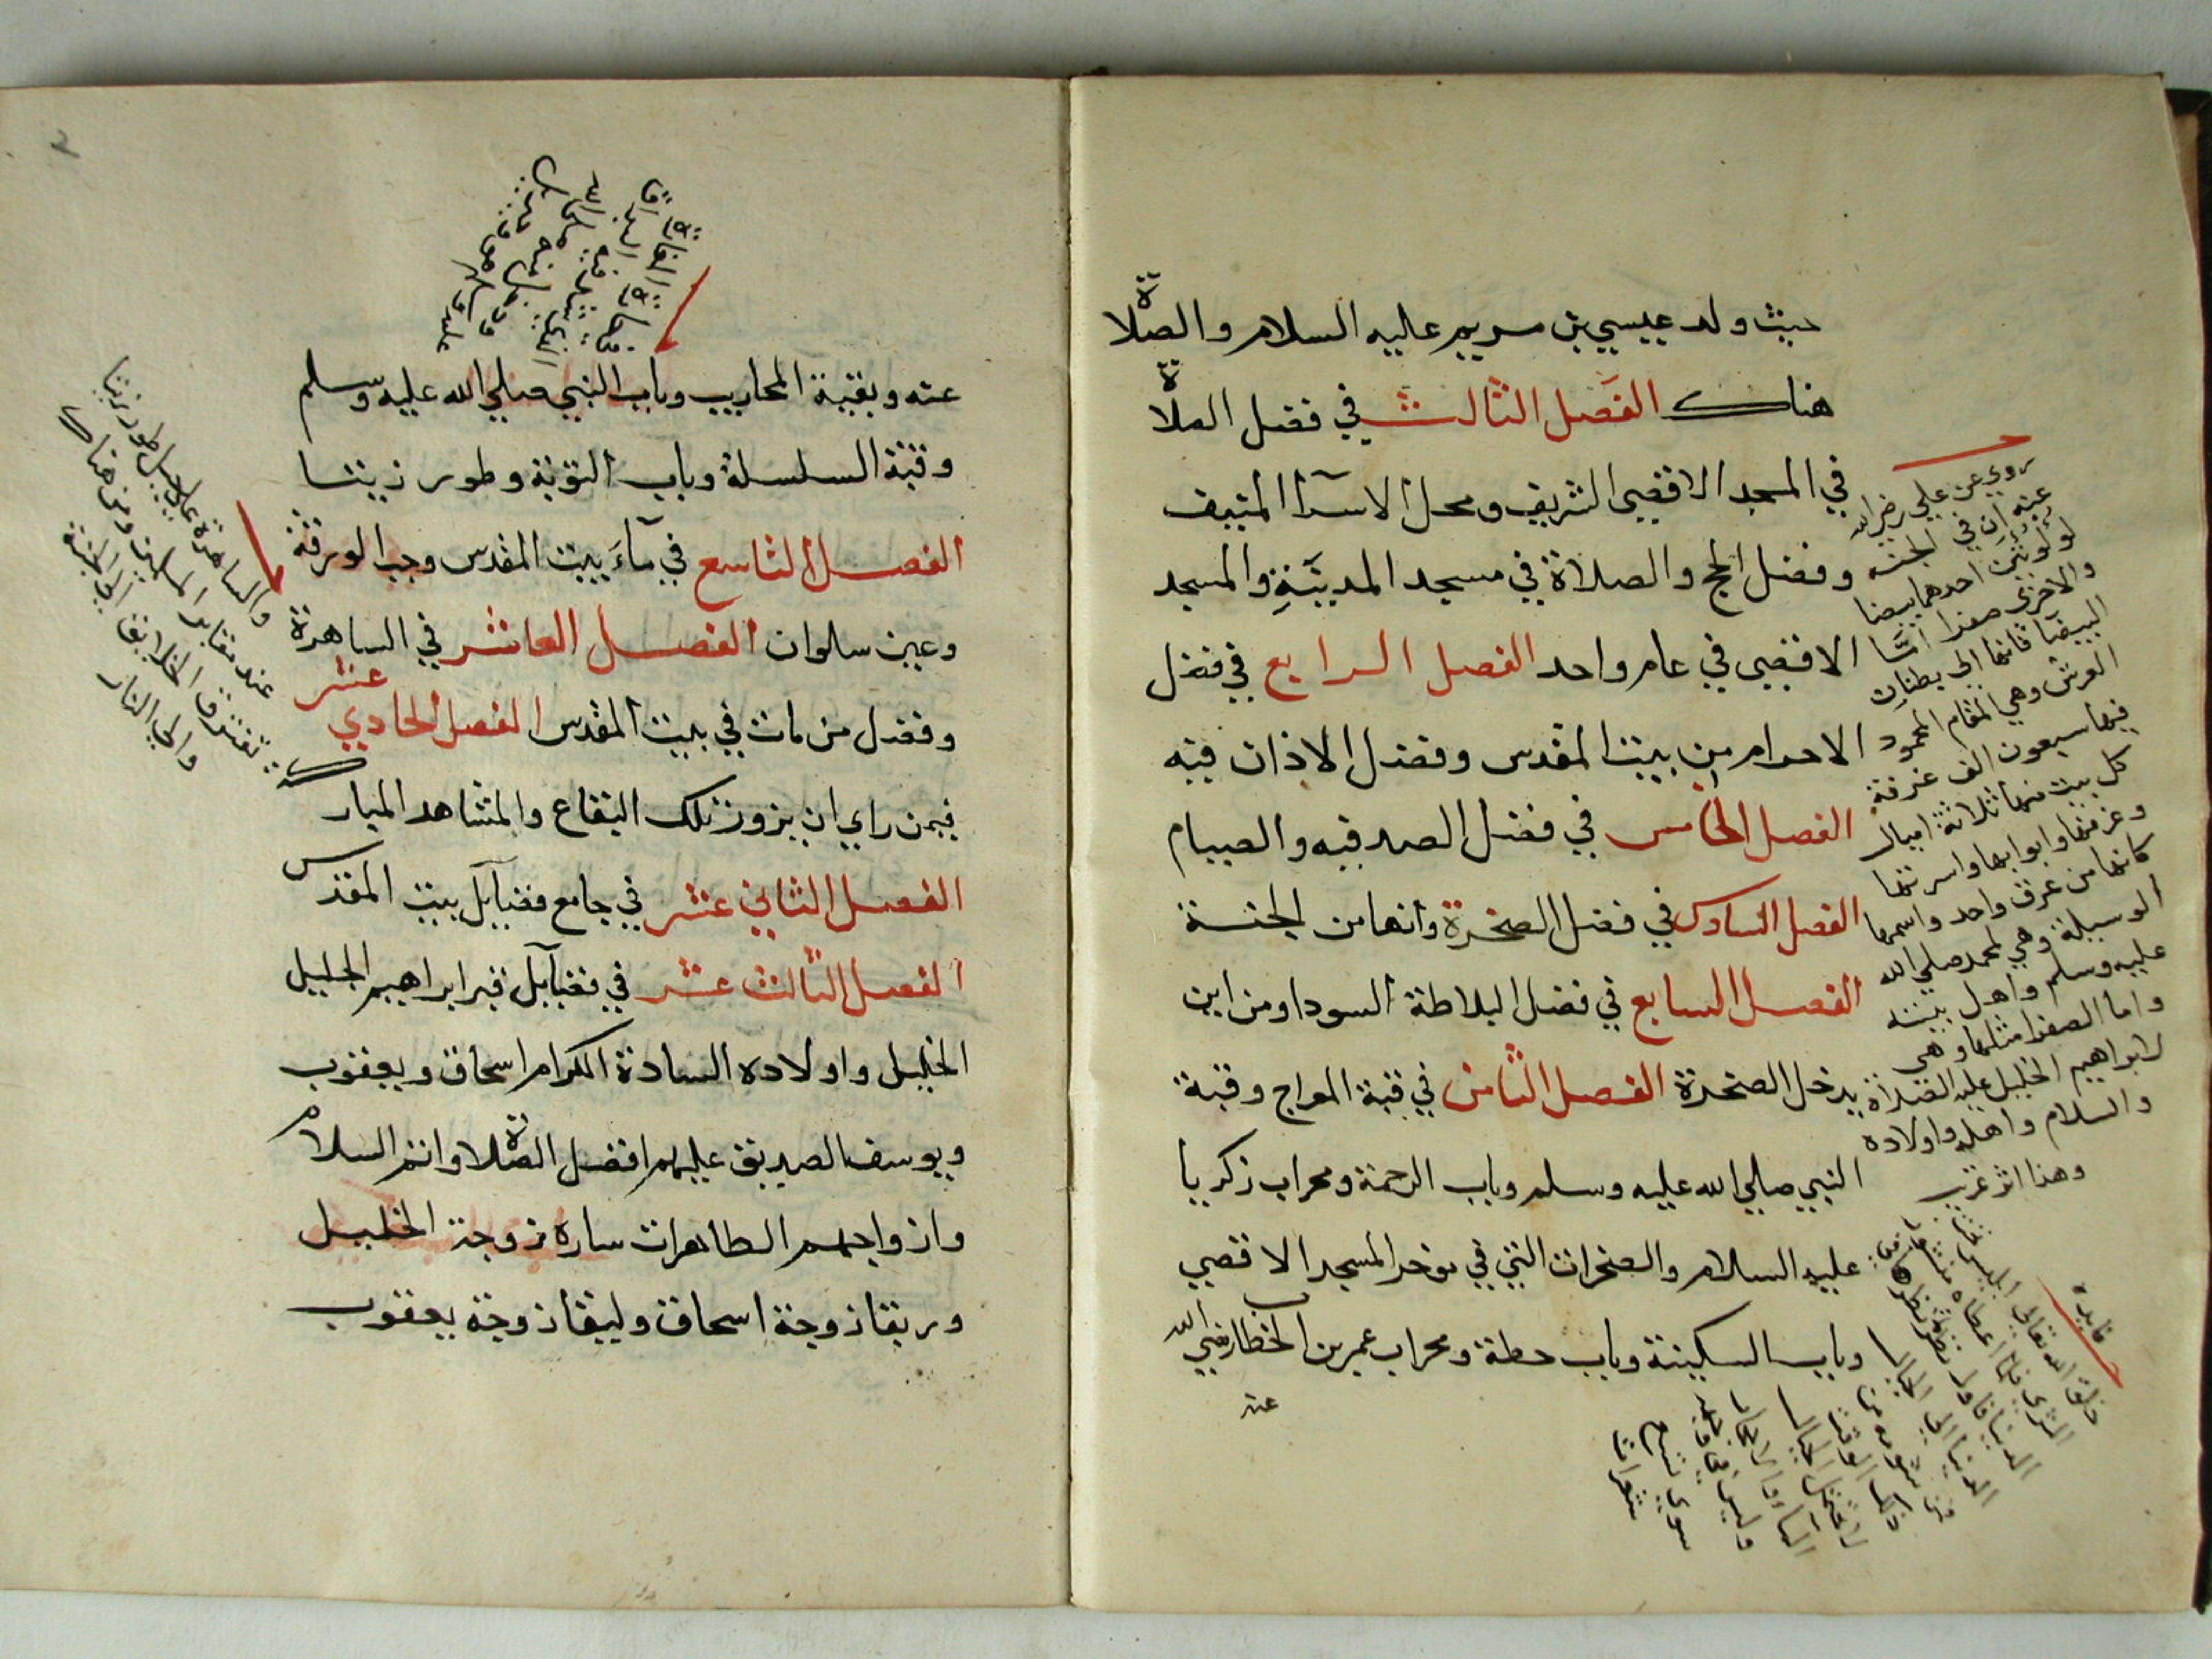 حيث ولد عيسي بن مريم عليه السلام والصلاة
هناك الفصل الثالث في فضل الصلاة
في المسجد الاقصي الشريف ومحل الاسرآ المنيف
وفضل الحج والصلاة في مسجد المدينة والمسجد
الاقصي في عام واحد الفصل الرابع في فضل
الاحرام من بيت المقدس وفضل الاذان فيه
الفصل الخامس في فضل الصدقه والصيام
الفصل السادس في فضل الصخرة وانها من الجنة
الفصل السابع في فضل البلاطة السودا ومن اين
يدخل الصخرة الفصل الثامن في قبة المعراج وقبة
النبي صلي الله عليه وسلم وباب الرحمة ومحراب زكريا
عليه السلام والصخرات التي في موخر المسجد الاقصي
وباب السكينة وباب حطة ومحراب عمر بن الخطاب رضي الله
عنه
روي عن علي رضي الله
عنه ان في الجنه
لولوتين احدهما بيضا
والاخرى صفرا امّا
البيضا فانها الى بطنان
العرش وهي المقام المحمود
فيها سبعون الف غرفة
كل بيت منها ثلاثة اميال
وغرفها وابوابها واسرتها
كانها من عرق واحد واسمها
الوسيلة وهي لمحمد صلى الله
عليه وسلم واهل بيته
واما الصفرا مثلها وهي
لابراهيم الخليل عليه الصلاة
والسلام واهله واولاده
وهذا اثر غريب
فايده
عنه وبقية المحاريب وباب النبي صلي الله عليه وسلم
وقبة السلسلة وباب التوبة وطور زيتا
الفصل التاسع في مآء بيت المقدس وجب الورقة
وعين سلوان الفصل العاشر في الساهرة
وفضل من مات في بيت المقدس الفصل الحادي عشر
فيمن راي ان يزور تلك البقاع والمشاهد المباركة
الفصل الثاني عشر في جامع فضآيل بيت المقدس
الفصل الثالث عشر في فضآيل قبر ابراهيم الجليل
الخليل واولاده السادة الكرام اسحاق ويعقوب
ويوسف الصديق عليهم افضل الصلاة واتم السلام
وازواجهم الطاهرات ساره زوجة الخليل
وربقا زوجة اسحاق وليقا زوجة يعقوب
والساهرة على جبل طور زيتا
عند مقابر المسلمين ومن هناك
تفترق الخلايق الى الجنة
والى النار